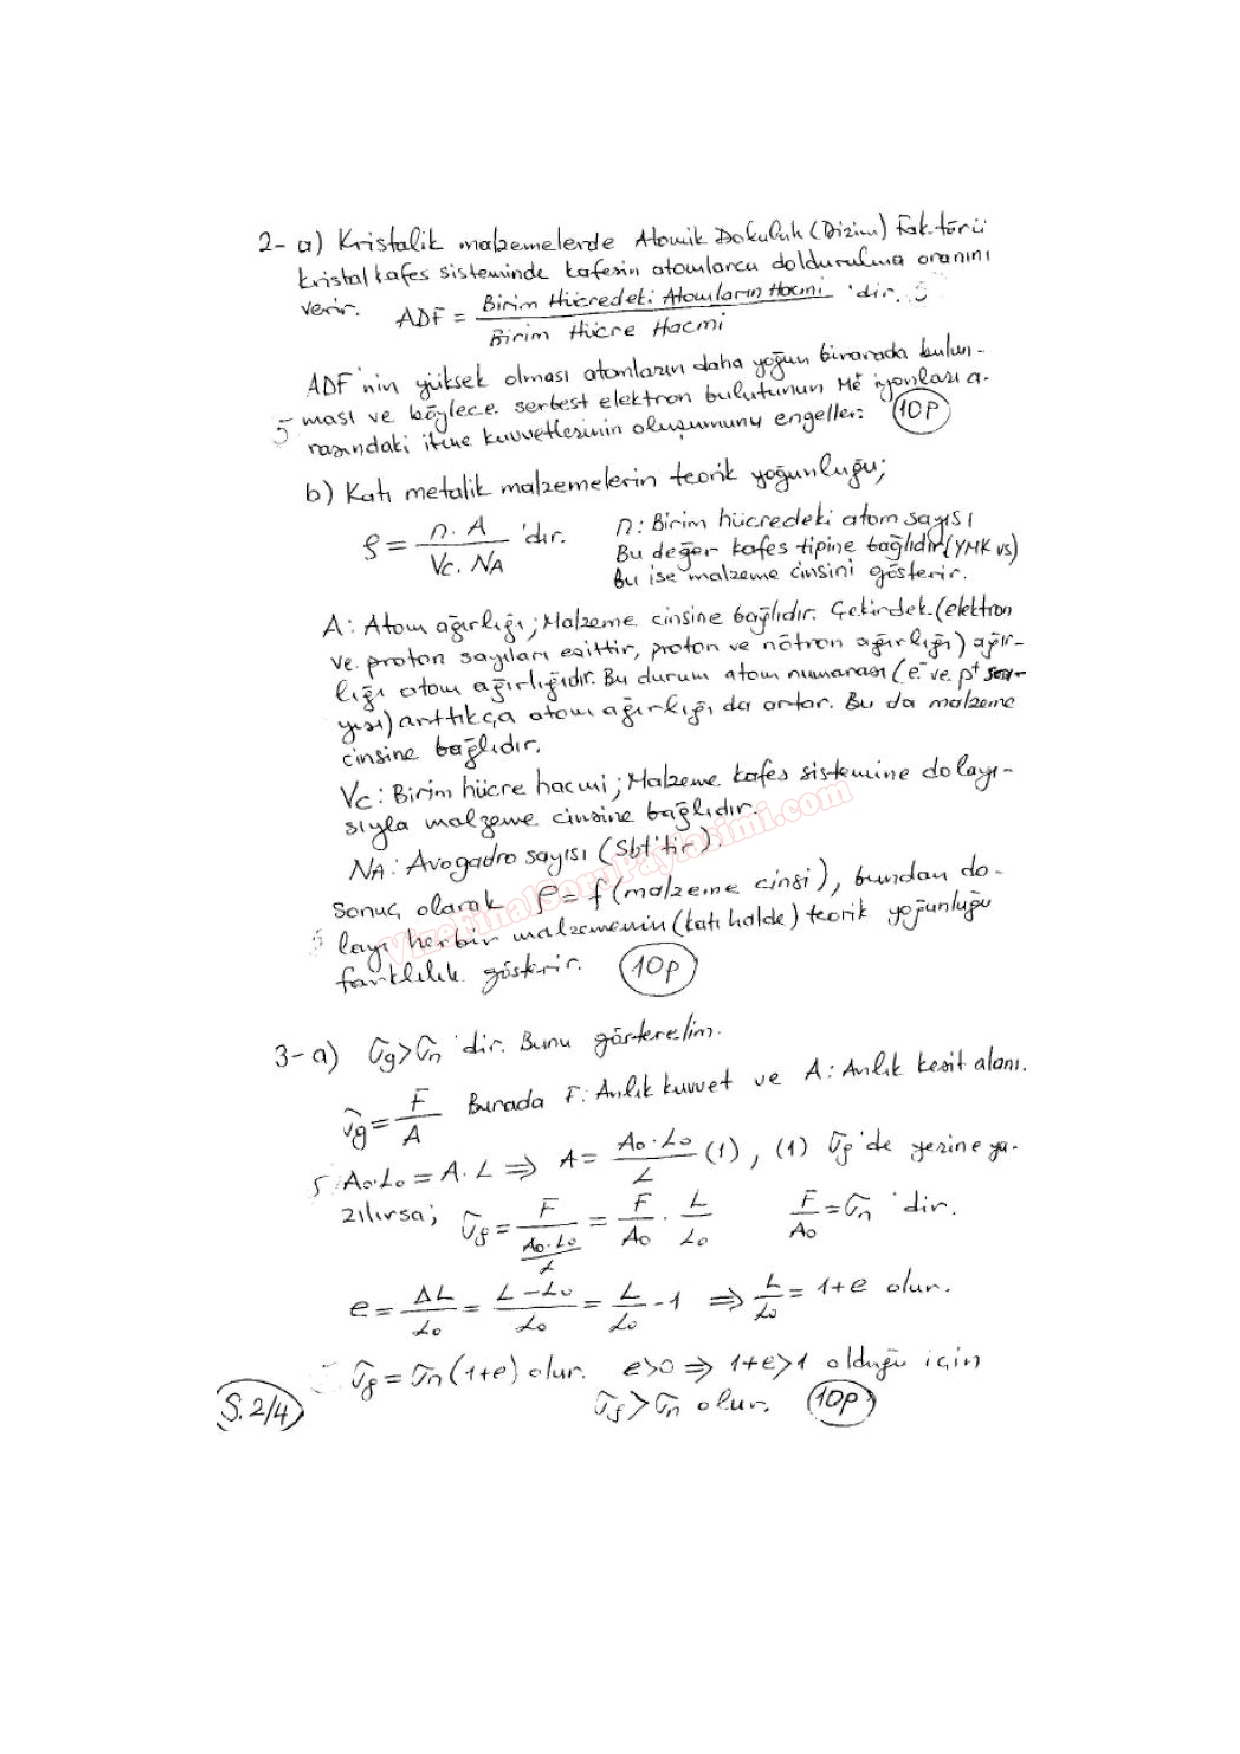 2- a) Kristalik malzemelerde Atomik Dokuluk (Dizim) Faktörü
kristal kafes sisteminde kafesin atomlarca doldurulma oranını
verir. ADF = Birim Hücredeki Atomların Hacmi / Birim Hücre Hacmi 'dir. 5
ADF'nin yüksek olması atomların daha yoğun birarada bulun-
5 ması ve böylece serbest elektron bulutunun Me iyonları a-
rasındaki itme kuvvetlerinin oluşumunu engeller. 10P
b) Katı metalik malzemelerin teorik yoğunluğu;
ρ = n.A / Vc.NA 'dır. n: Birim hücredeki atom sayısı
Bu değer kafes tipine bağlıdır (YMK vs)
Bu ise malzeme cinsini gösterir.
A: Atom ağırlığı; Malzeme cinsine bağlıdır. Çekirdek (elektron
ve proton sayıları eşittir, proton ve nötron ağırlığı) ağır-
lığı atom ağırlığıdır. Bu durum atom numarası (e⁻ ve p⁺ sa-
yısı) arttıkça atom ağırlığı da artar. Bu da malzeme
cinsine bağlıdır.
Vc: Birim hücre hacmi; Malzeme kafes sistemine dolayı-
sıyla malzeme cinsine bağlıdır.
NA: Avogadro sayısı (Sbt'tir).
Sonuç olarak ρ = f (malzeme cinsi), bundan do-
5 layı herbir malzemenin (katı halde) teorik yoğunluğu
farklılık gösterir. 10p
VizeFinalSoruPaylasimi.com
3- a) σg > σn 'dir. Bunu gösterelim.
σg = F/A Burada F: Anlık kuvvet ve A: Anlık kesit alanı.
5 A₀.L₀ = A.L ⇒ A = A₀.L₀ / L (1), (1) σg'de yerine ya-
zılırsa; σg = F / (A₀.L₀ / L) = F/A₀ . L/L₀ F/A₀ = σn 'dir.
e = ΔL/L₀ = L-L₀/L₀ = L/L₀ - 1 ⇒ L/L₀ = 1+e olur.
5 σg = σn (1+e) olur. e>0 ⇒ 1+e>1 olduğu için
σg > σn olur. 10P
S.2/4